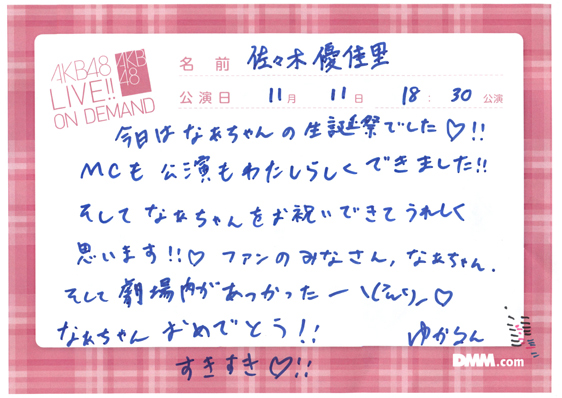 AKB48
LIVE!!
ON DEMAND
AKB
48
名前 佐々木優佳里
公演日 11月 11日 18:30公演
今日はなぁちゃんの生誕祭でした♡!!
MCも公演もわたしらしくできました!!
そしてなぁちゃんをお祝いできてうれしく
思います!!♡ ファンのみなさん,なぁちゃん.
そして劇場内があつかったー \( )ノ♡
なぁちゃん おめでとう!! ゆかるん
すきすき♡!!
DMM.com